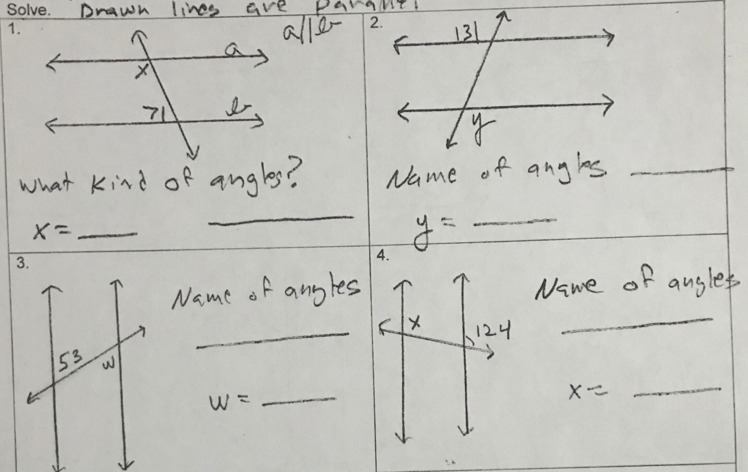 Solve. Drawn lines are Parallel
1.
a||b
a
x
71
b
What Kind of angles?
x=
2.
131
y
Name of angles
y=
3.
Name of angles
53
w
w=
4.
Name of angles
x
124
x=